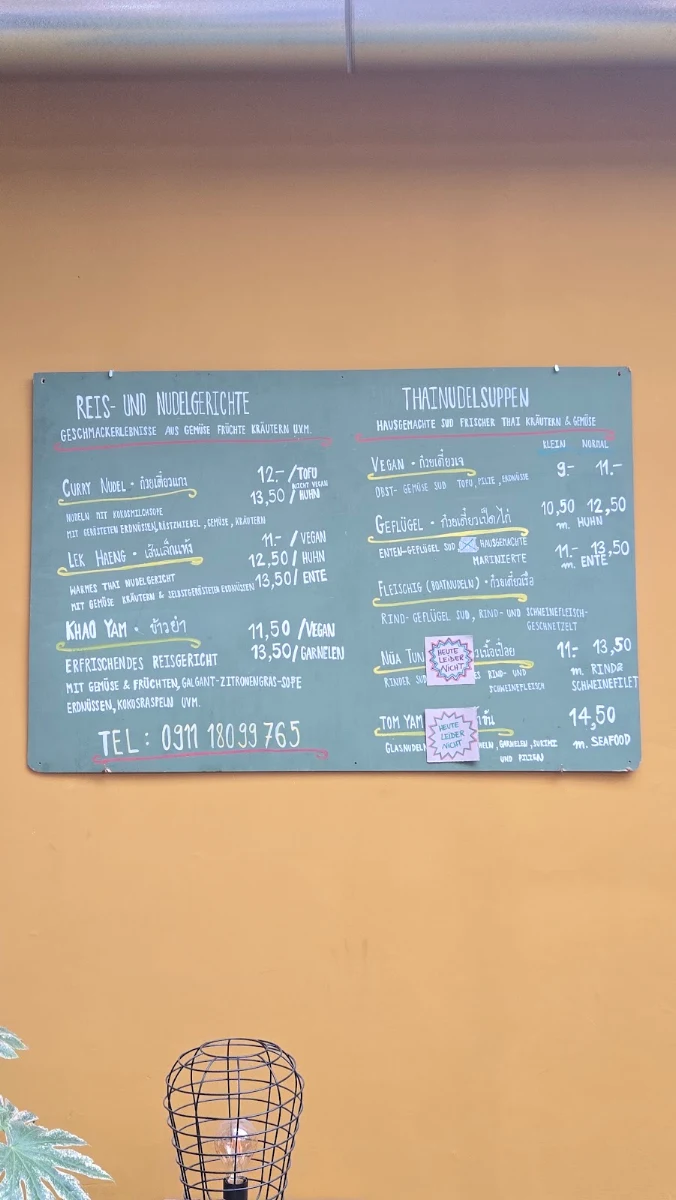 REIS- UND NUDELGERICHTE
GESCHMACKERLEBNISSE AUS GEMÜSE FRÜCHTE KRÄUTERN UVM.
CURRY NUDEL • ก๋วยเตี๋ยวแกง
12.- / TOFU
NICHT VEGAN
13,50 / HUHN
NUDELN MIT KOKOSMILCHSUPE
MIT GERÖSTETEN ERDNÜSSEN, RÖSTZWIEBEL, GEMÜSE, KRÄUTERN
LEK HAENG • เส้นเล็กแห้ง
11.- / VEGAN
12,50 / HUHN
13,50 / ENTE
WARMES THAI NUDELGERICHT
MIT GEMÜSE KRÄUTERN & SELBSTGERÖSTETEN ERDNÜSSEN
KHAO YAM • ข้าวยำ
11,50 / VEGAN
13,50 / GARNELEN
ERFRISCHENDES REISGERICHT
MIT GEMÜSE & FRÜCHTEN, GALGANT-ZITRONENGRAS-SOPE
ERDNÜSSEN, KOKOSRASPELN UVM.
TEL: 0911 18099765
THAINUDELSUPPEN
HAUSGEMACHTE SUD FRISCHER THAI KRÄUTERN & GEMÜSE
KLEIN NORMAL
VEGAN • ก๋วยเตี๋ยวเจ
9.- 11.-
OBST- GEMÜSE SUD TOFU, PILZE, ERDNÜSSE
GEFLÜGEL • ก๋วยเตี๋ยวเป็ด/ไก่
10,50 12,50
m. HUHN
ENTEN-GEFLÜGEL SUD HAUSGEMACHTE
MARINIERTE
11.- 13,50
m. ENTE
FLEISCHIG (BOATNUDELN) • ก๋วยเตี๋ยวเรือ
RIND- GEFLÜGEL SUD, RIND- UND SCHWEINEFLEISCH-
GESCHNETZELT
NÜA TUN
HEUTE
LEIDER
NICHT
วเนื้อเปื่อย
11.- 13,50
m. RIND &
SCHWEINEFILET
RINDER SUD RIND- UND
SCHWEINEFLEISCH
TOM YAM
HEUTE
LEIDER
NICHT
14,50
m. SEAFOOD
GLASNUDELN GARNELEN, SURIMI
UND PILZEN